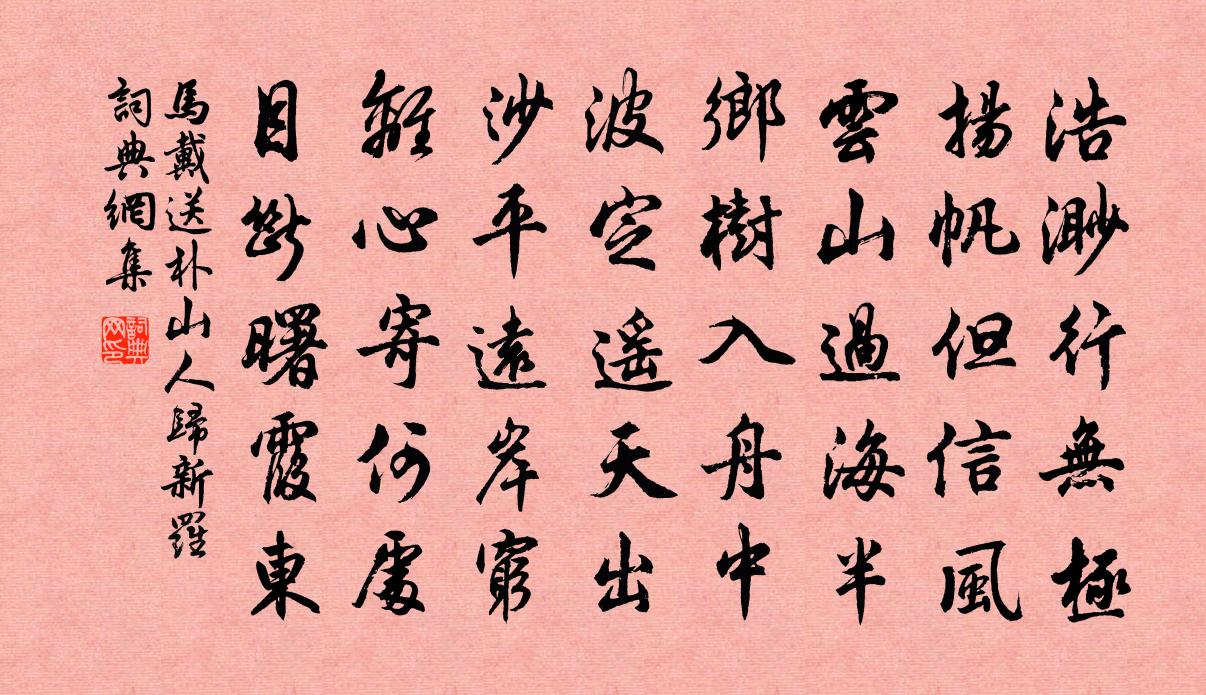 浩渺行無極
揚帆但信風
雲山過海半
鄉樹入舟中
波定遥天出
沙平遠岸窮
離心寄何處
目斷曙霞東
馬戴送朴山人歸新羅
詞典網集
詞典網印